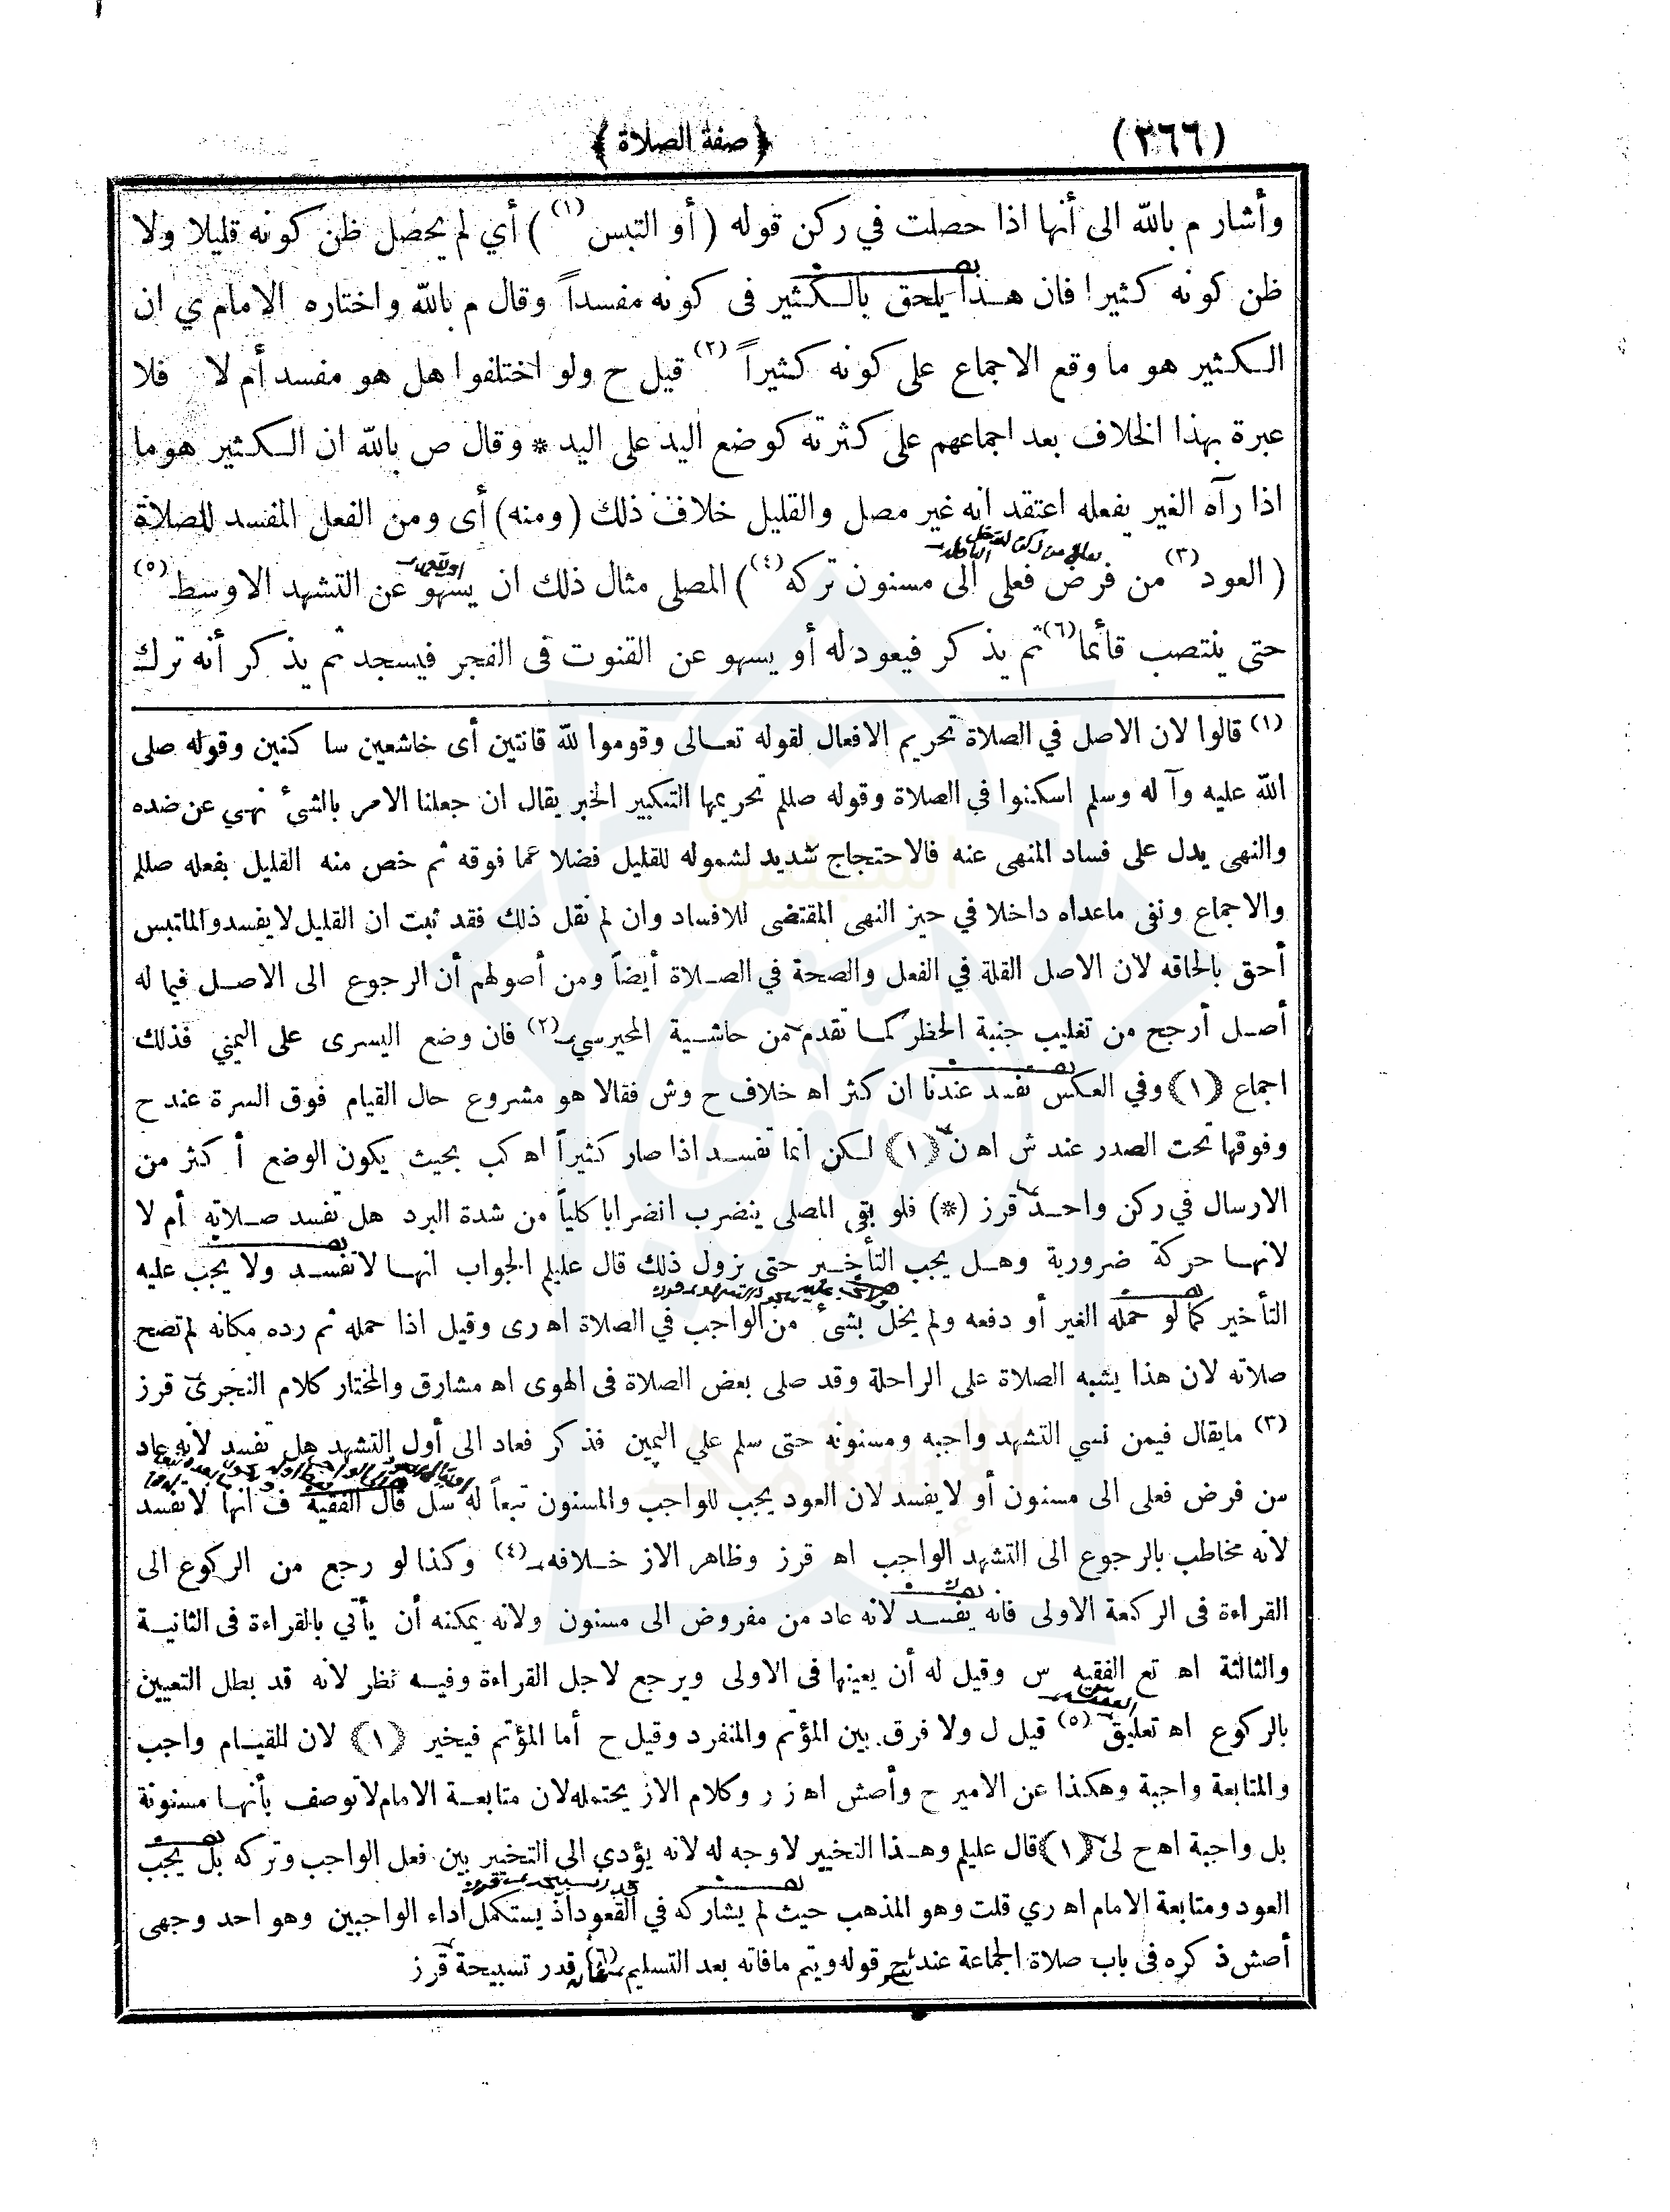 (٢٦٦)
﴿ صفة الصلاة ﴾
وأشار م بالله الى أنها اذا حصلت في ركن قوله ( أو التبس (١) ) أي لم يحصل ظن كونه قليلا ولا
ظن كونه كثيرا فان هـذا يلحق بالـكثير فى كونه مفسداً وقال م بالله واختاره الامام ي ان
الـكثير هو ما وقع الاجماع على كونه كثيراً (٢) قيل ح ولو اختلفوا هل هو مفسد أم لا فلا
عبرة بهذا الخلاف بعد اجماعهم على كثرته كوضع اليد على اليد * وقال ص بالله ان الـكثير هو ما
اذا رآه الغير يفعله اعتقد انه غير مصل والقليل خلاف ذلك ( ومنه ) أى ومن الفعل المفسد للصلاة
( العود (٣) من فرض فعلى الى مسنون تركه (٤) ) المصلى مثال ذلك ان يسهو عن التشهد الاوسط (٥)
حتى ينتصب قأئما (٦) ثم يذكر فيعود له أو يسهو عن القنوت فى الفجر فيسجد ثم يذكر أنه ترك
(١) قالوا لان الاصل في الصلاة تحريم الافعال لقوله تعـالى وقوموا لله قانتين أى خاشعين سا كنين وقوله صلى
الله عليه وآ له وسلم اسكنوا في الصلاة وقوله صللم تحريمها التكبير الخبر يقال ان جعلنا الامر بالشئ نهي عن ضده
والنهى يدل على فساد المنهى عنه فالاحتجاج شديد لشموله للقليل فضلا عما فوقه ثم خص منه القليل بفعله صللم
والاجماع ونفى ماعداه داخلا في حيز النهى المقتضى للافساد وان لم نقل ذلك فقد ثبت ان القليل لا يفسد والملتبس
أحق بالحاقه لان الاصل القلة في الفعل والصحة في الصـلاة أيضاً ومن أصولهم أن الرجوع الى الاصـل فيما له
أصـل أرجح من تغليب جنبة الحظر كمـا تقدم من حاشـية المحيرسي (٢) فان وضع اليسرى على اليمني فذلك
اجماع (١) وفي العكس تفسد عندنا ان كثر اه خلاف ح وش فقالا هو مشروع حال القيام فوق السرة عند ح
وفوقها تحت الصدر عند ش اه ن (١) لـكن انما تفسـد اذا صار كثيراً اه كب بحيث يكون الوضع أ كثر من
الارسال في ركن واحـد قرز (*) فلو بقى المصلى ينضرب انضرابا كلياً من شدة البرد هل تفسد صـلاته أم لا
لانهـا حركة ضرورية وهـل يجب التأخـير حتى نزول ذلك قال عليلم الجواب انهـا لا تفسـد ولا يجب عليه
التأخير كما لو حمله الغير أو دفعه ولم يخل بشئ من الواجب في الصلاة اه رى وقيل اذا حمله ثم رده مكانه لم تصح
صلاته لان هذا يشبه الصلاة على الراحلة وقد صلى بعض الصلاة فى الهوى اه مشارق والمختار كلام النجرى قرز
(٣) مايقال فيمن نسي التشهد واجبه ومسنونه حتى سلم علي اليمين فذكر فعاد الى أول التشهد هل تفسد لانه عاد
من فرض فعلى الى مسنون أو لا يفسد لان العود يجب للواجب والمسنون تبعاً له سل قال الفقيه ف انها لا تفسد
لانه مخاطب بالرجوع الى التشهد الواجب اه قرز وظاهر الاز خـلافه (٤) وكذا لو رجع من الركوع الى
القراءة فى الركعة الاولى فانه يفسـد لانه عاد من مفروض الى مسنون ولانه يمكنه أن يأتي بالقراءة فى الثانيـة
والثالثة اه تع الفقيه س وقيل له أن يعينها فى الاولى ويرجع لاجل القراءة وفيـه نظر لانه قد بطل التعيين
بالركوع اه تعليق (٥) قيل ل ولا فرق بين المؤتم والمنفرد وقيل ح أما المؤتم فيخير (١) لان للقيـام واجب
والمتابعة واجبة وهكذا عن الامير ح وأصش اه ز ر وكلام الاز يحتمله لان متابعـة الامام لا توصف بأنهـا مسنونة
بل واجبة اه ح لى (١) قال عليلم وهـذا التخيير لا وجه له لانه يؤدي الى التخيير بين فعل الواجب وتركه بل يجب
العود ومتابعة الامام اه ري قلت وهو المذهب حيث لم يشاركه في القعود اذ يستكمل اداء الواجبين وهو احد وجهى
أصش ذكره فى باب صلاة الجماعة عند شرح قوله ويتم مافاته بعد التسليم (٦) قدر تسبيحة قرز